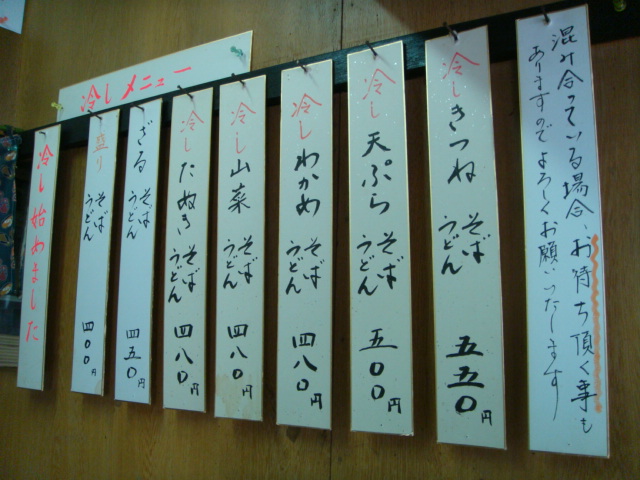 冷しメニュー
混み合っている場合、お待ち頂く事も
ありますのでよろしくお願いいたします
冷しきつね そば
うどん
五五〇円
冷し天ぷら そば
うどん
五〇〇円
冷しわかめ そば
うどん
四八〇円
冷し山菜 そば
うどん
四八〇円
冷したぬき そば
うどん
四八〇円
ざる そば
うどん
四五〇円
盛り そば
うどん
四〇〇円
冷し始めました